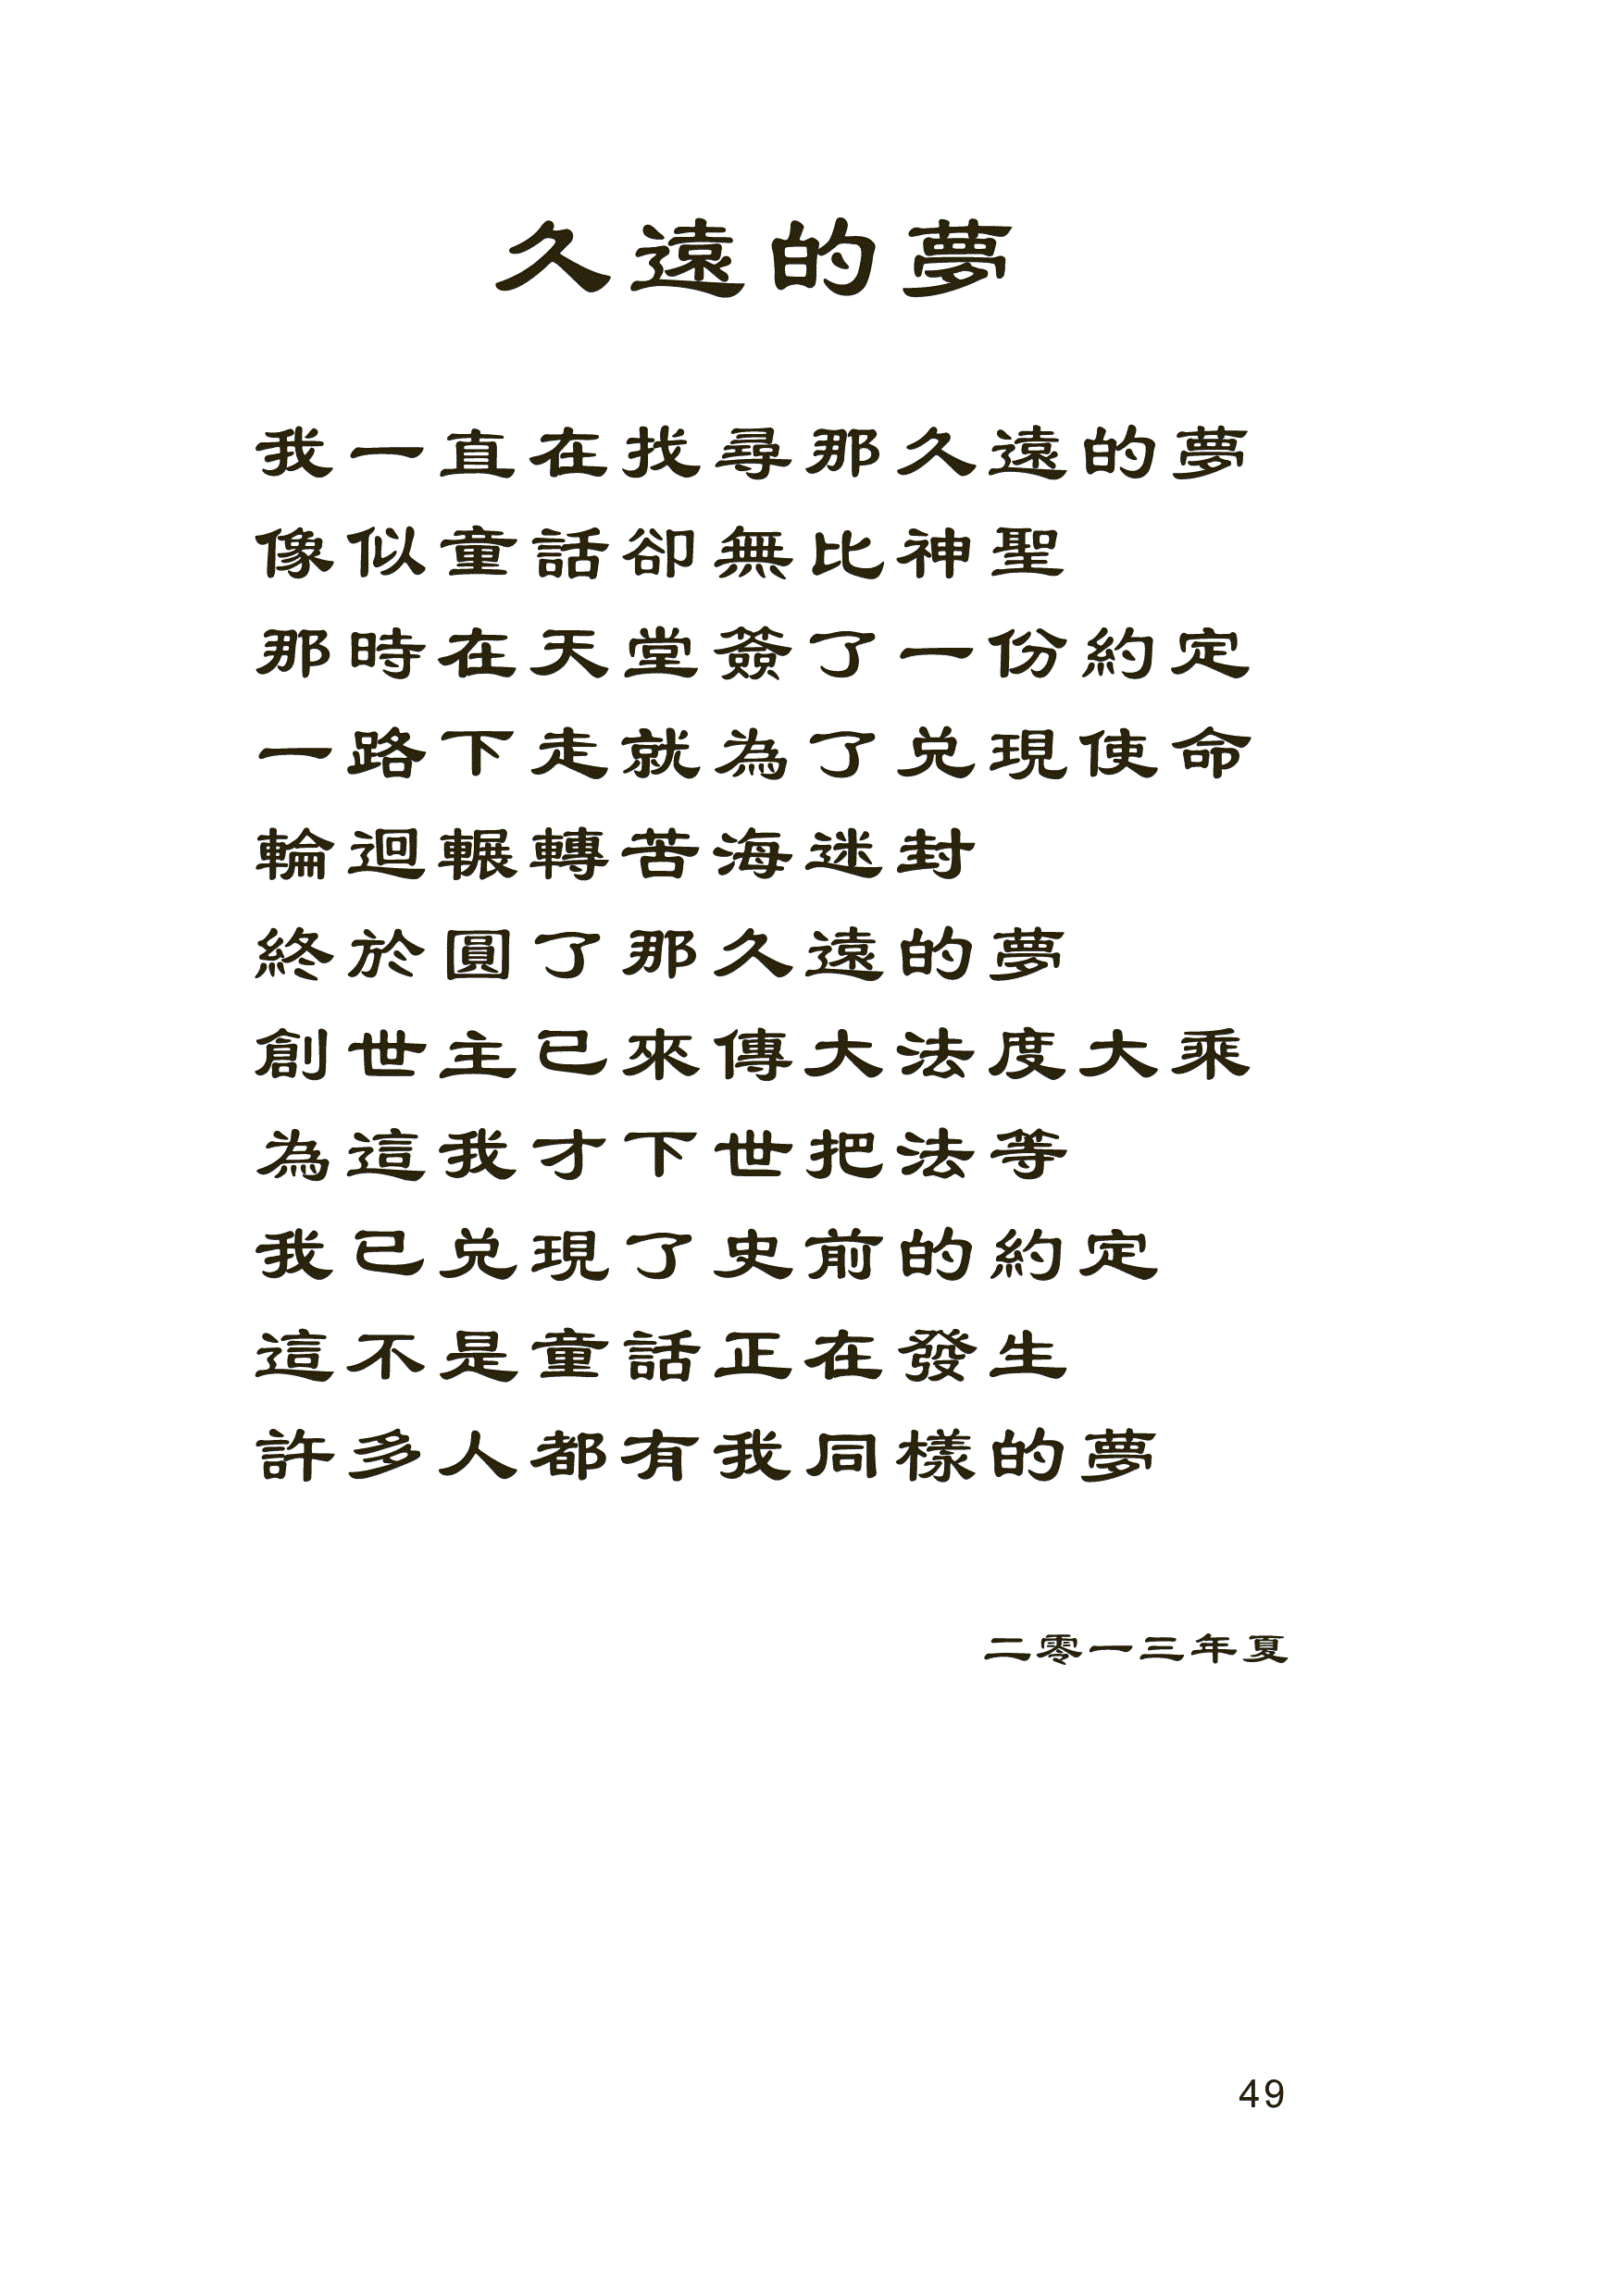 久遠的夢
我一直在找尋那久遠的夢
像似童話卻無比神聖
那時在天堂簽了一份約定
一路下走就為了兌現使命
輪迴輾轉苦海迷封
終於圓了那久遠的夢
創世主已來傳大法度大乘
為這我才下世把法等
我已兌現了史前的約定
這不是童話正在發生
許多人都有我同樣的夢
二零一三年夏
49